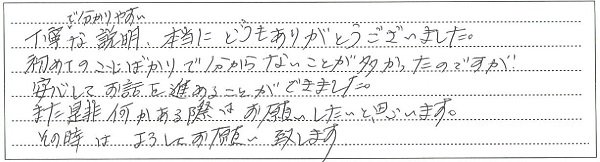 で分かりやすい
丁寧な説明、本当にどうもありがとうございました。
初めてのことばかりで分からないことが多かったのですが
安心してお話を進めることができました。
また是非何かある際はお願いしたいと思います。
その時は よろしくお願い致します